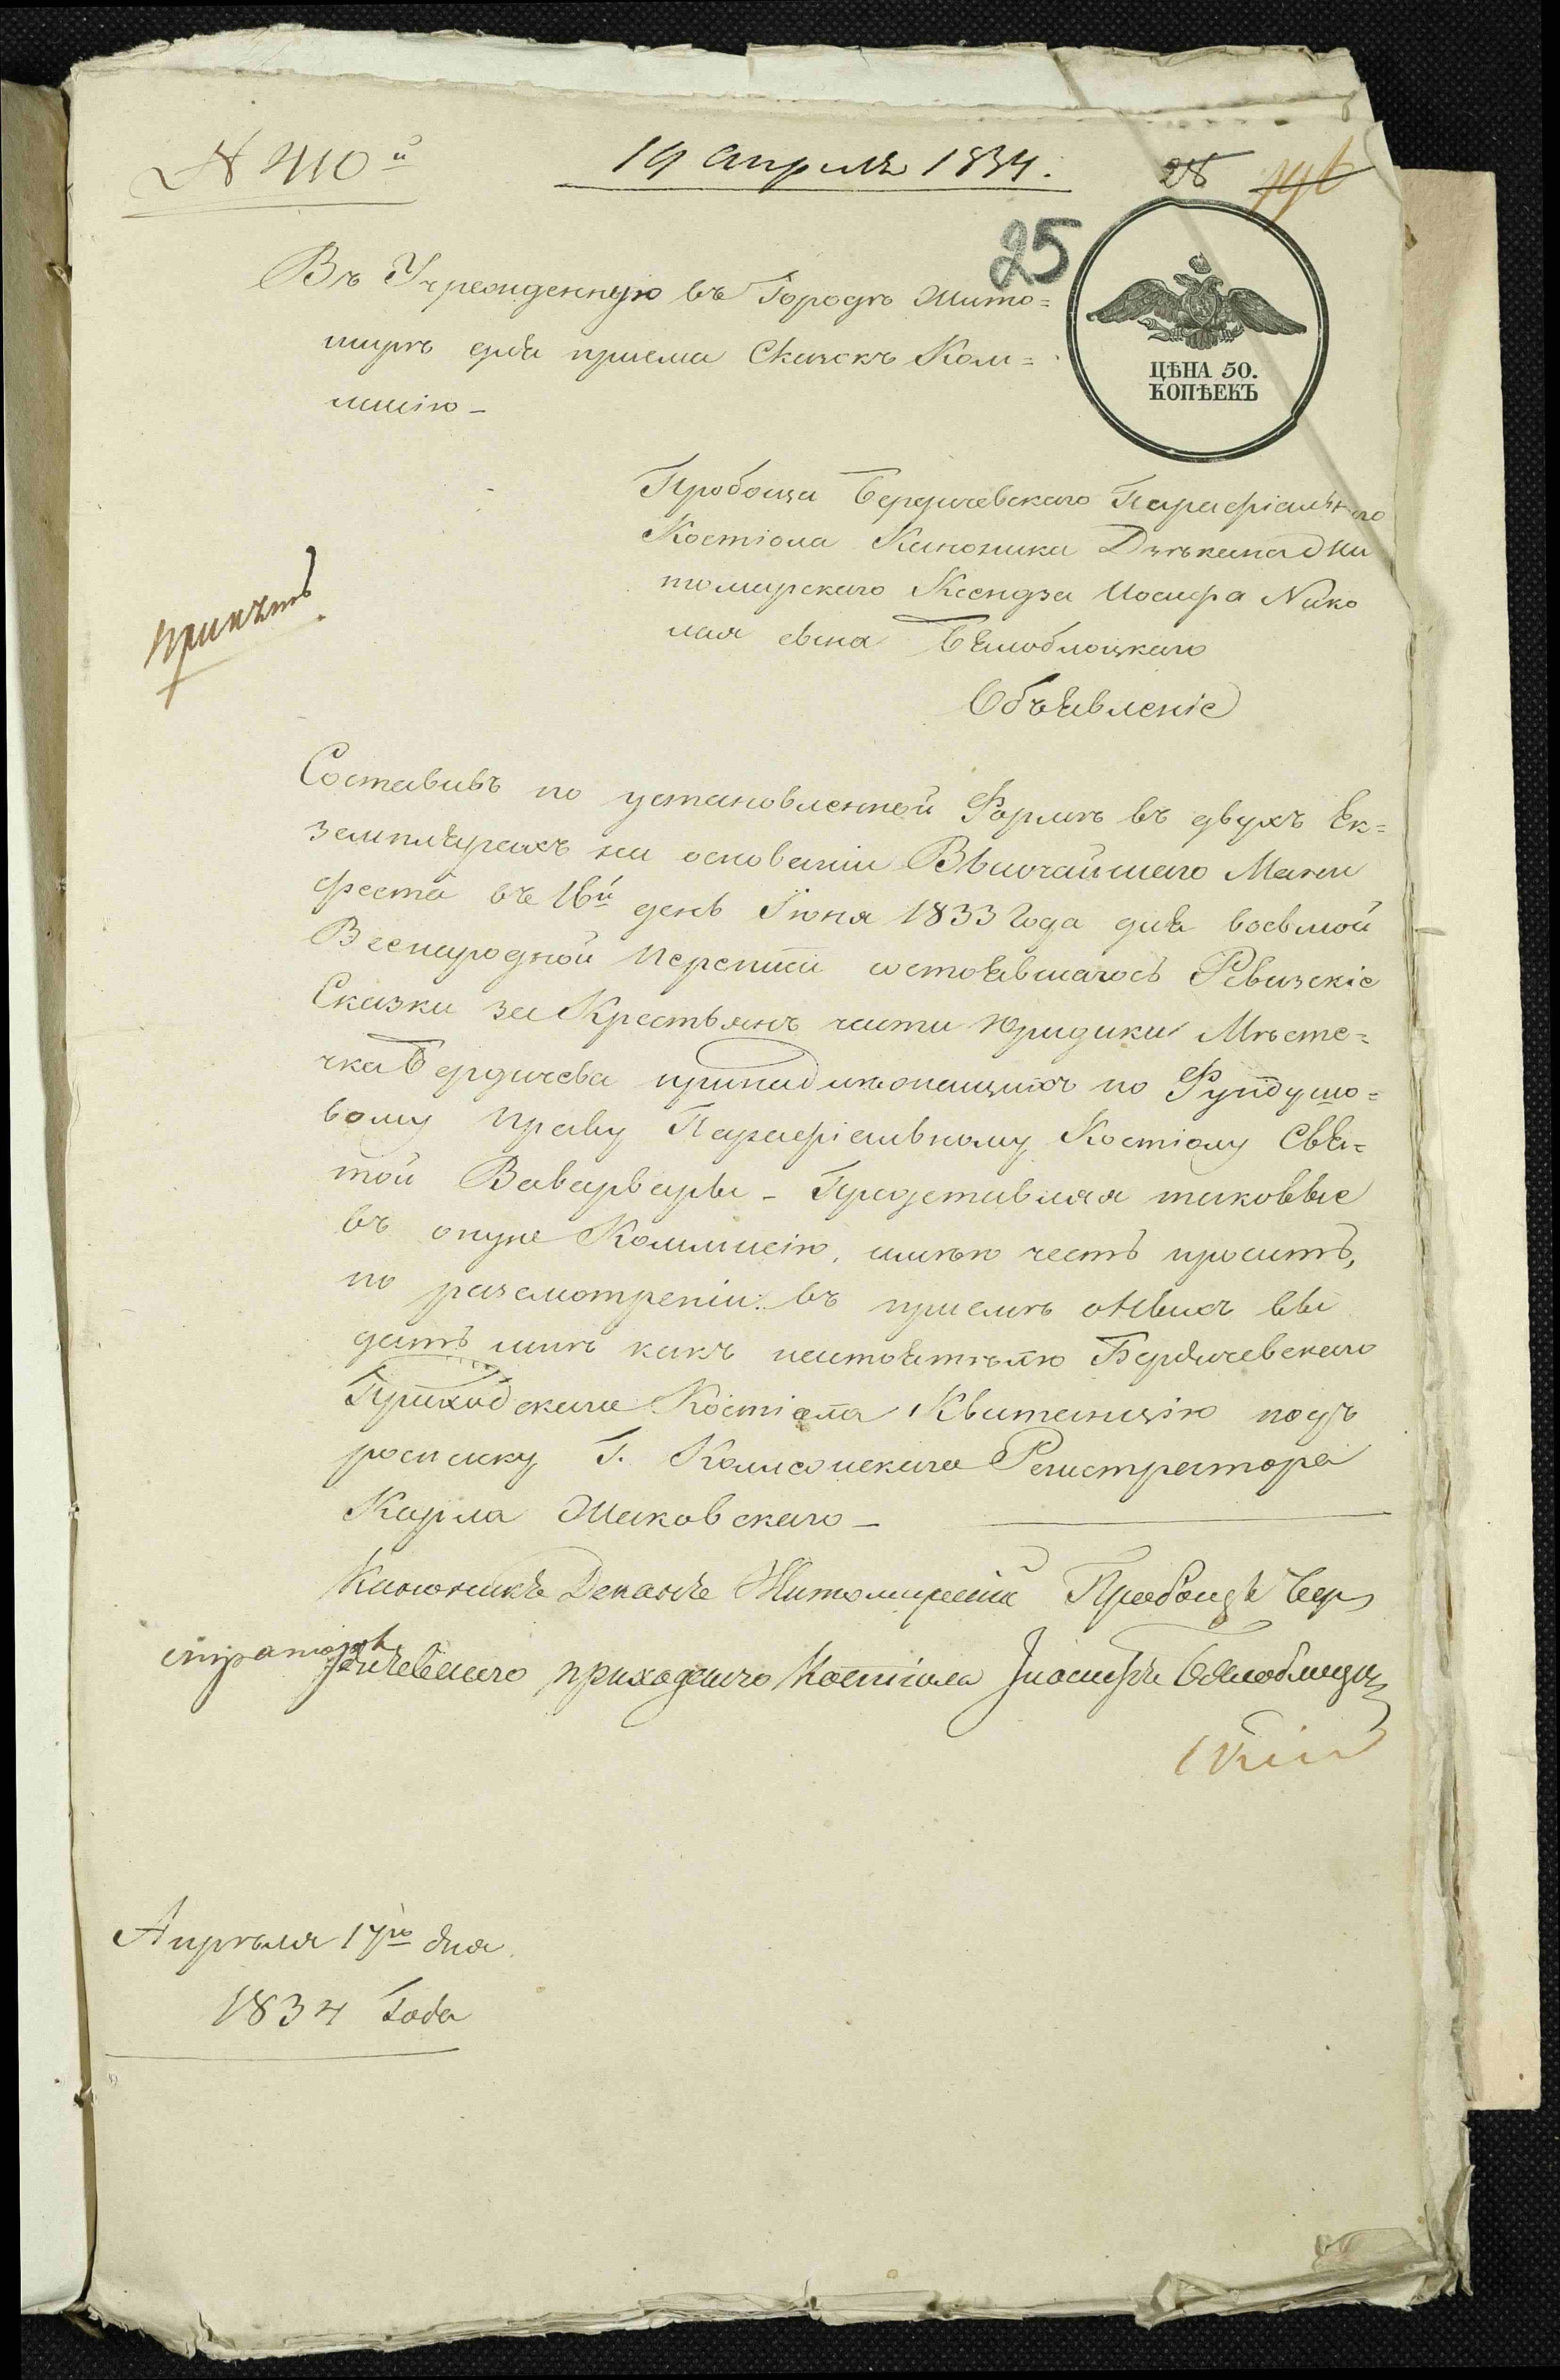 N 410й
19 Апреля 1834.
28
25
Въ Учрежденную въ Городѣ Жито=
мирѣ для приема Сказокъ Ком=
мисію –
ЦѢНА 50.
КОПѢЕКЪ
Пробоща Бердичевскаго Парафіальнаго
Костіола Каноника Дѣкана Жи
томирскаго Ксендза Иосифа Нико
лая сына Бѣлоблоцкаго
Объявленіе
принять
Составивъ по установленной Формѣ въ двухъ Ек=
земплярахъ на основаніи Высочайшаго Мани
феста въ 16й день Іюня 1833 Года для восьмой
Всенародной Переписи состоявшагось Ревизскіе
Сказки за Крестьянъ части Юридики Мѣсте=
чка Бердичева принадлѣжащихъ по Фундушо=
вому Праву Парафіальному Костіолу Свя=
той Ваварвары – Представляя таковые
въ оную Коммисію, имѣю честь просить,
по разсмотреніи въ приемѣ оныхъ вы
дать мнѣ какъ настоятѣлю Бердичевскаго
Приходскаго Костіола Квитанцію подъ
росписку Г. Коллежскаго Регистратора
Карла Жаковскаго –
Каноникъ Деканъ Житомирскій Пробощъ Бер
дичевскаго приходскаго Костіола Іиосифъ Бѣлоблоц
скій
Апрѣля 17го дня
1834 Года